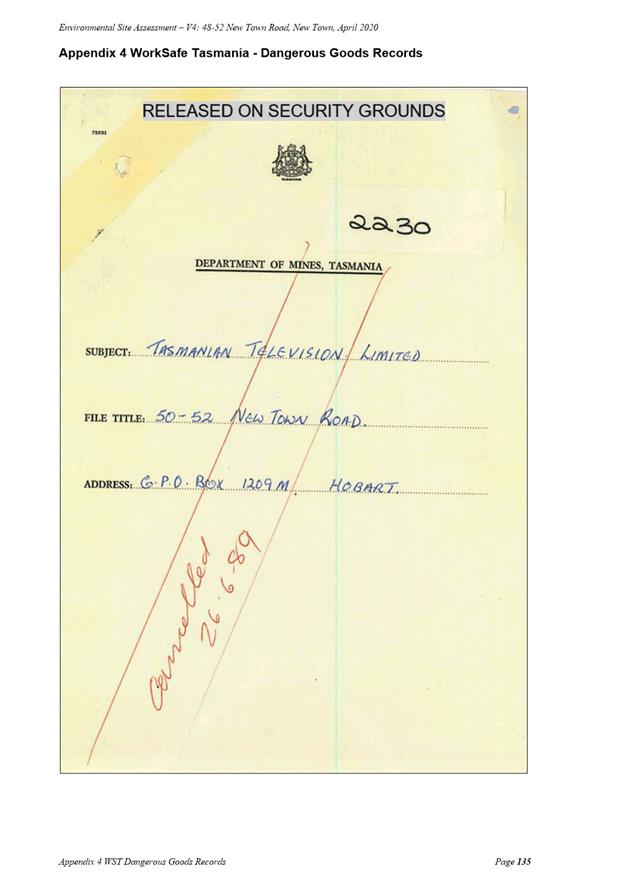 Environmental Site Assessment – V4: 48-52 New Town Road, New Town, April 2020
Appendix 4 WorkSafe Tasmania - Dangerous Goods Records
RELEASED ON SECURITY GROUNDS
TASMANIA
2230
DEPARTMENT OF MINES, TASMANIA
SUBJECT: TASMANIAN TELEVISION LIMITED
FILE TITLE: 50-52 NEW TOWN ROAD.
ADDRESS: G.P.O. BOX 1209M, HOBART.
Cancelled
26.6.89
Appendix 4 WST Dangerous Goods Records
Page 135